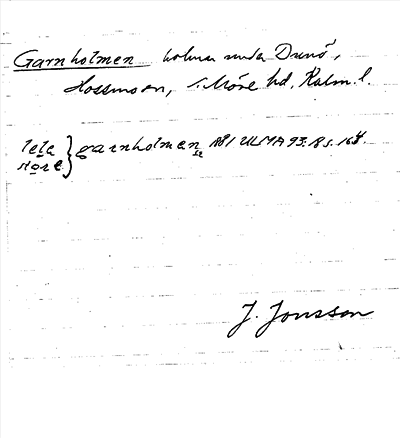 Garnholmen holme under Dunö,
Hossmo sn, S. Möre hd, Kalm. l.
lela
store } garnholmen 1881 ULMA 93:18 s. 164.
J. Jonsson